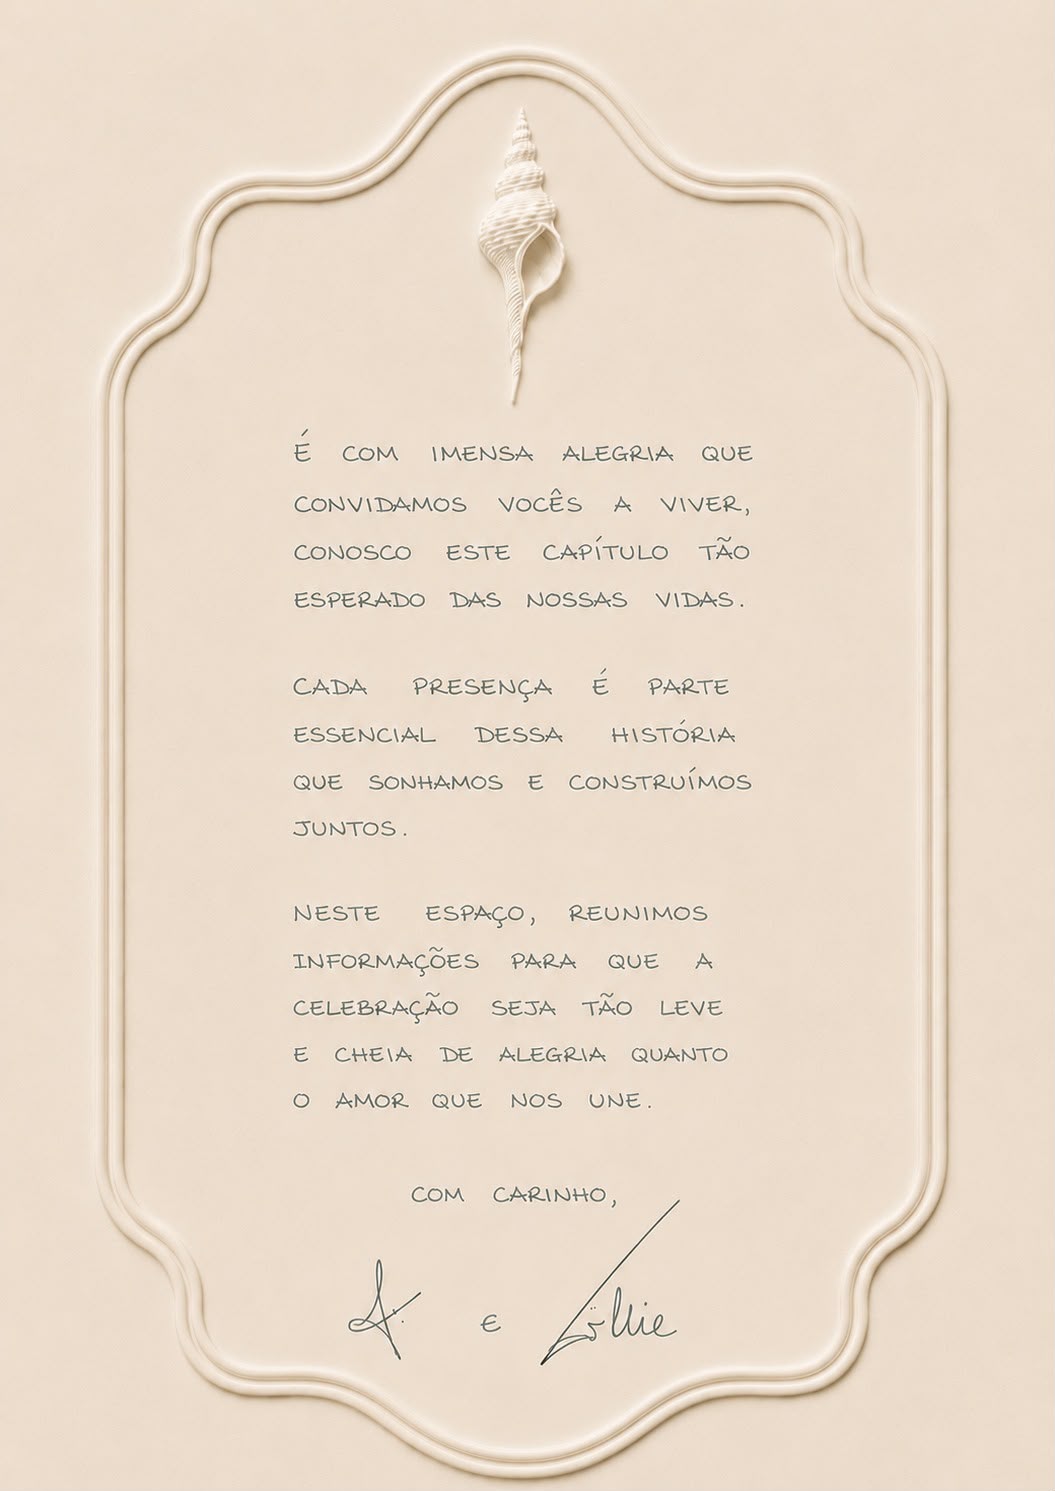 É COM IMENSA ALEGRIA QUE
CONVIDAMOS VOCÊS A VIVER,
CONOSCO ESTE CAPÍTULO TÃO
ESPERADO DAS NOSSAS VIDAS.
CADA PRESENÇA É PARTE
ESSENCIAL DESSA HISTÓRIA
QUE SONHAMOS E CONSTRUÍMOS
JUNTOS.
NESTE ESPAÇO, REUNIMOS
INFORMAÇÕES PARA QUE A
CELEBRAÇÃO SEJA TÃO LEVE
E CHEIA DE ALEGRIA QUANTO
O AMOR QUE NOS UNE.
COM CARINHO,
E